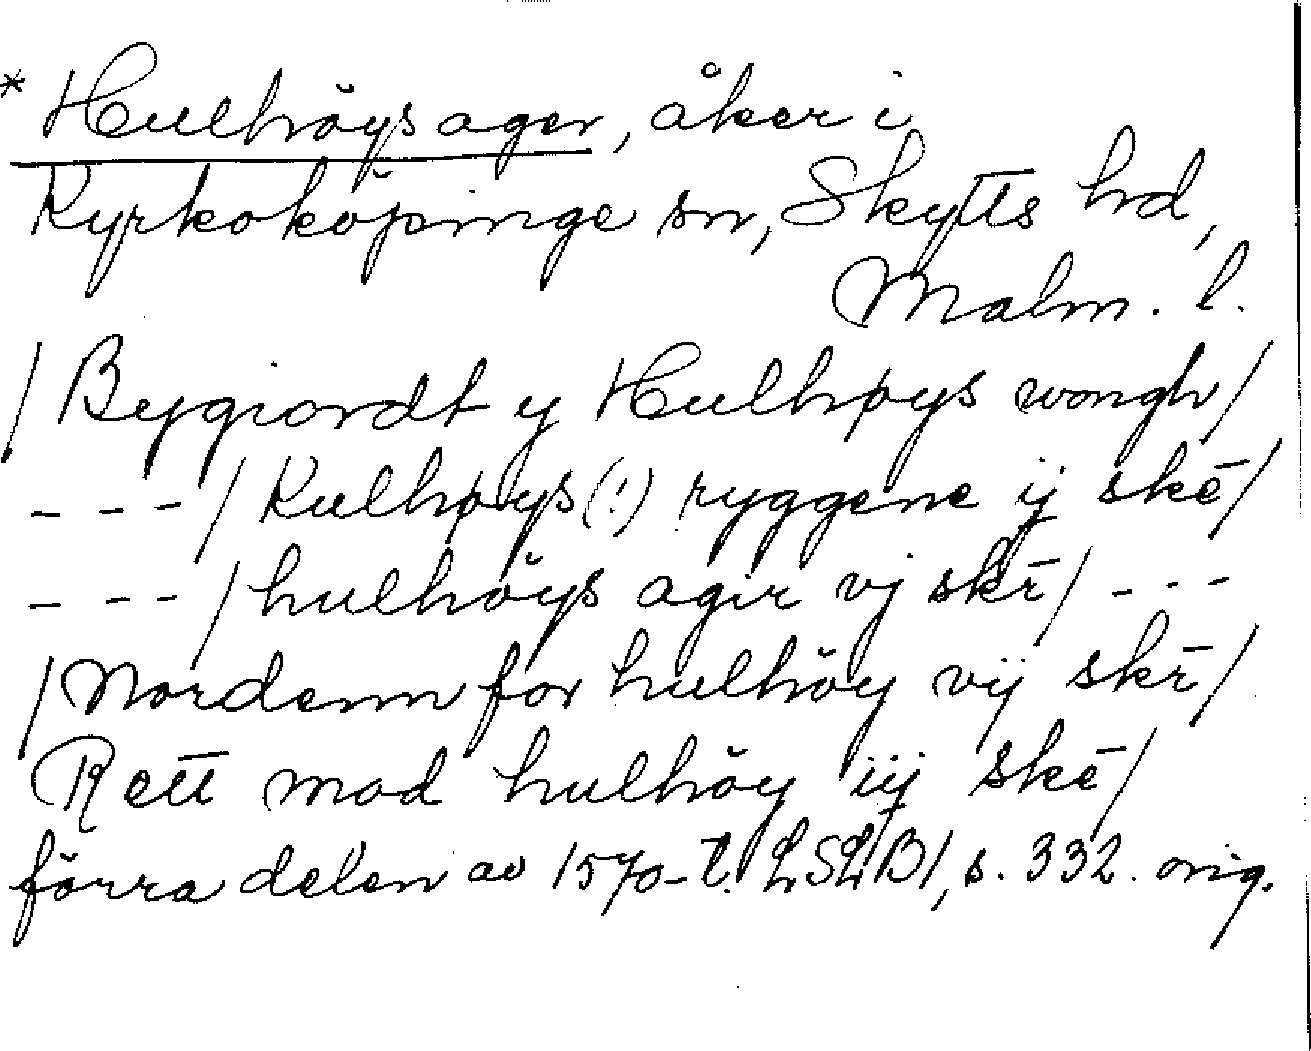 * Hulhöys ager, åker i
Kyrkoköpinge sn, Skytts hd,
Malm. l.
/ Bygiordt y Hulhøys wongh /
- - - / Kulhøys (!) ryggene ij skē /
- - - / hulhöys agir vj skr̄ / - - -
/ Nordenn for hulhöy vij skr̄ /
Rett mod hulhöy iij skē /
förra delen av 1570-t. LSLB1, s. 332. orig.